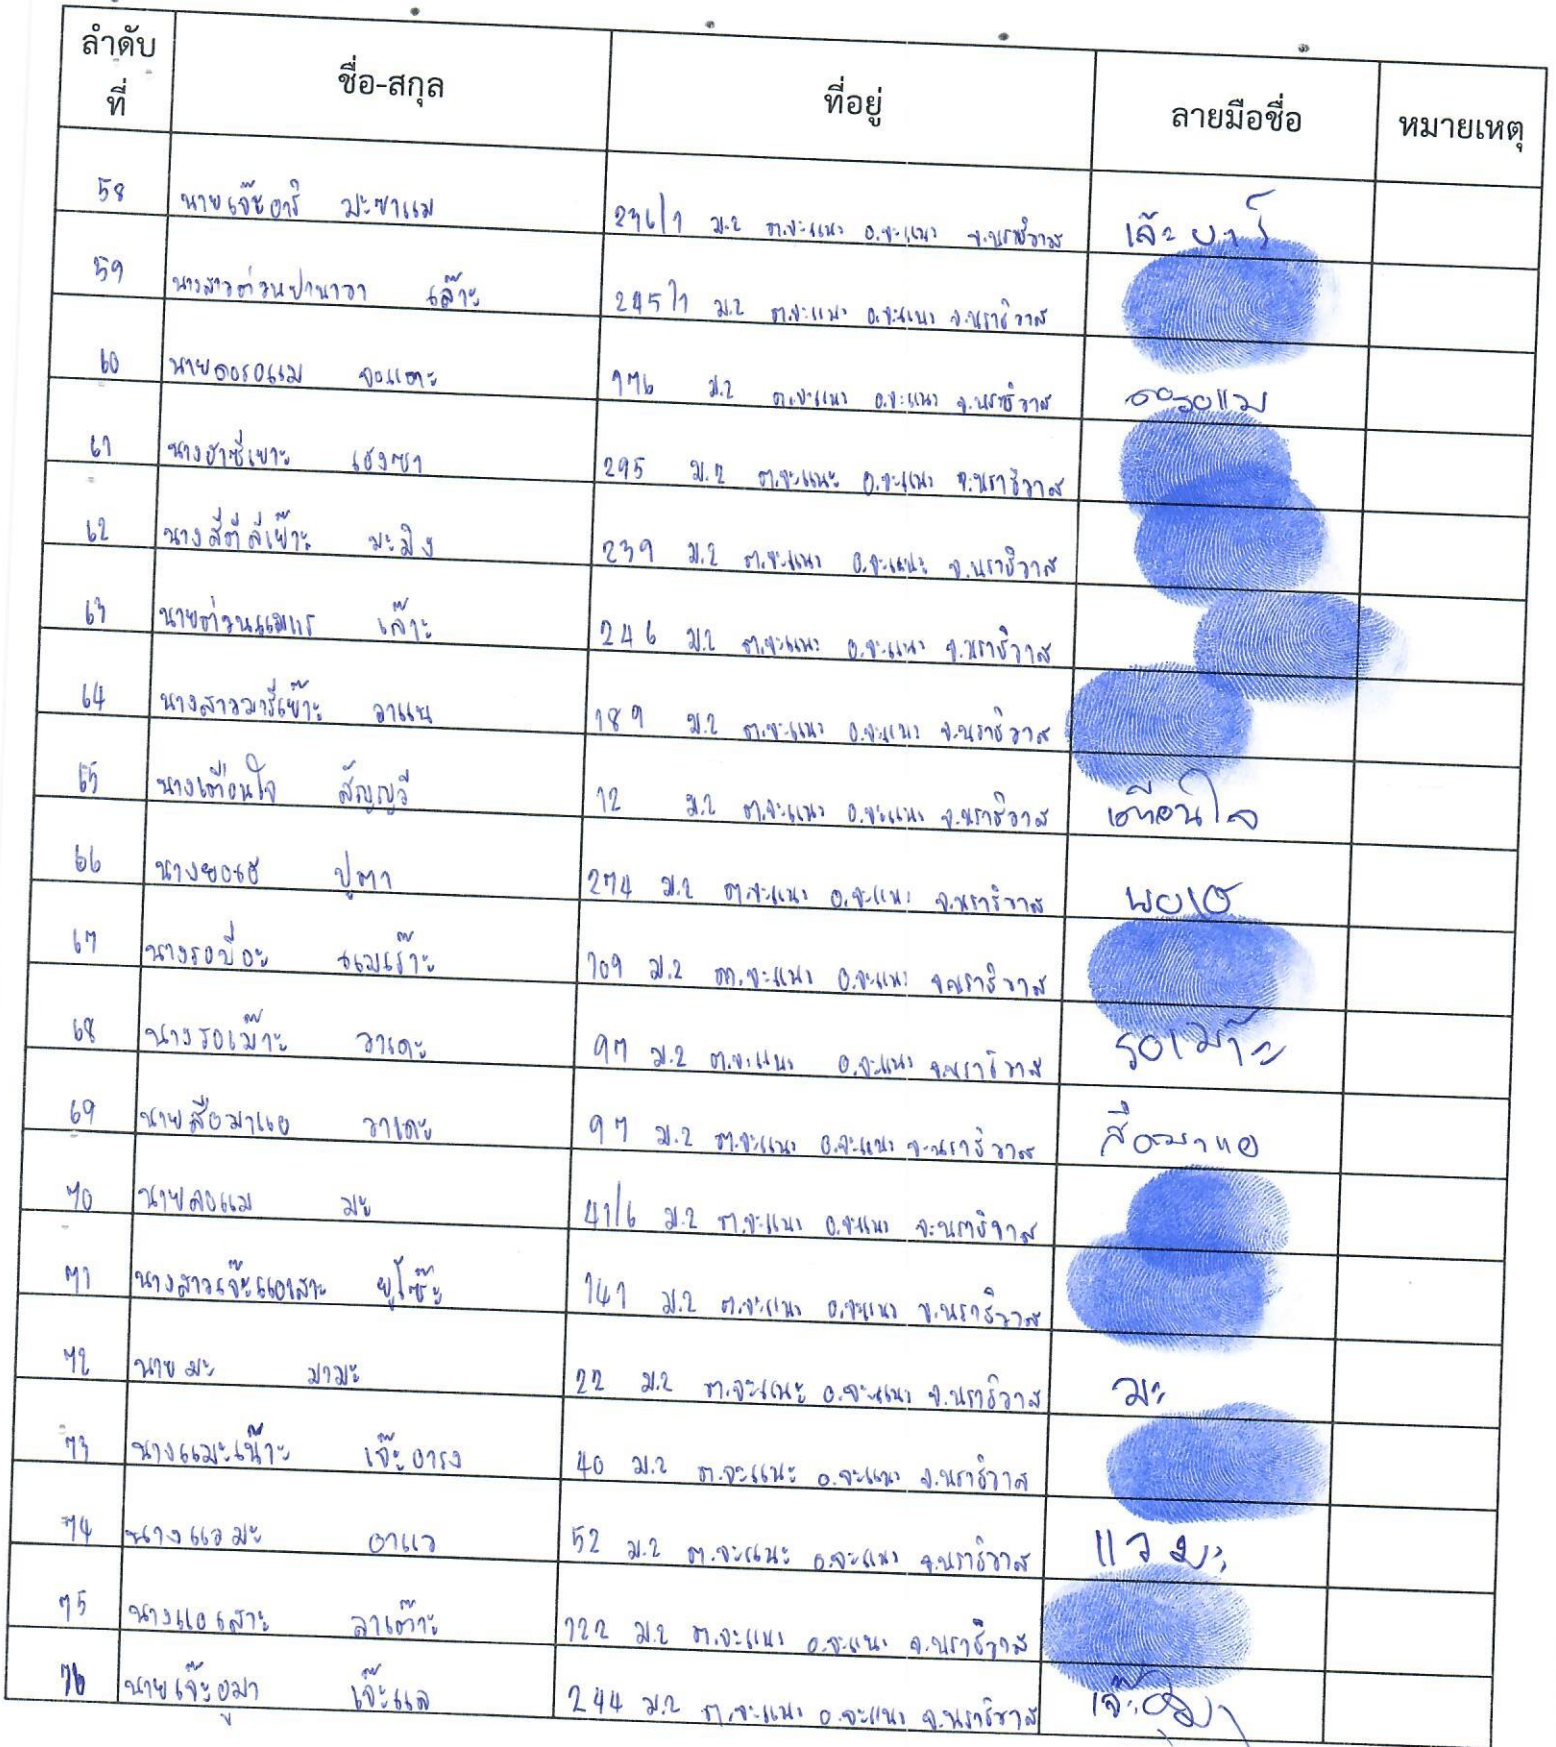 ลำดับที่ ชื่อ-สกุล ที่อยู่ ลายมือชื่อ หมายเหตุ
58 นายเจ๊ะอารี มะซาแม 236/1 ม.2 ต.จะแนะ อ.จะแนะ จ.นราธิวาส เจ๊ะอารี
59 นางสาวต่วนปานาวา เล๊าะ 245/1 ม.2 ต.จะแนะ อ.จะแนะ จ.นราธิวาส
60 นายดอรอแม จอแตะ 176 ม.2 ต.จะแนะ อ.จะแนะ จ.นราธิวาส ดอรอแม
61 นางฮาซีเยาะ เฮงซา 295 ม.2 ต.จะแนะ อ.จะแนะ จ.นราธิวาส
62 นางสีตีลีเย๊าะ มะมิง 239 ม.2 ต.จะแนะ อ.จะแนะ จ.นราธิวาส
63 นายต่วนแมแร เล๊าะ 246 ม.2 ต.จะแนะ อ.จะแนะ จ.นราธิวาส
64 นางสาวมารีเย๊าะ อาแน 189 ม.2 ต.จะแนะ อ.จะแนะ จ.นราธิวาส
65 นางเตือนใจ สัญญวี 12 ม.2 ต.จะแนะ อ.จะแนะ จ.นราธิวาส เตือนใจ
66 นางยอเฮ ปูตา 274 ม.2 ต.จะแนะ อ.จะแนะ จ.นราธิวาส ยอเฮ
67 นางรอบีอะ แมเร๊าะ 109 ม.2 ต.จะแนะ อ.จะแนะ จ.นราธิวาส
68 นางรอเม๊าะ วาเดะ 97 ม.2 ต.จะแนะ อ.จะแนะ จ.นราธิวาส รอเม๊าะ
69 นายสือมาแอ วาเดะ 97 ม.2 ต.จะแนะ อ.จะแนะ จ.นราธิวาส สือมาแอ
70 นายลอแม มะ 41/6 ม.2 ต.จะแนะ อ.จะแนะ จ.นราธิวาส
71 นางสาวเจ๊ะแอเสาะ ยูโซ๊ะ 141 ม.2 ต.จะแนะ อ.จะแนะ จ.นราธิวาส
72 นายมะ มามะ 22 ม.2 ต.จะแนะ อ.จะแนะ จ.นราธิวาส มะ
73 นางแมะเน๊าะ เจ๊ะอารง 40 ม.2 ต.จะแนะ อ.จะแนะ จ.นราธิวาส
74 นางแวมะ อาแว 52 ม.2 ต.จะแนะ อ.จะแนะ จ.นราธิวาส แวมะ
75 นางแอเสาะ ลาเต๊าะ 122 ม.2 ต.จะแนะ อ.จะแนะ จ.นราธิวาส
76 นายเจ๊ะอูมา เจ๊ะแล 244 ม.2 ต.จะแนะ อ.จะแนะ จ.นราธิวาส เจ๊ะอูมา